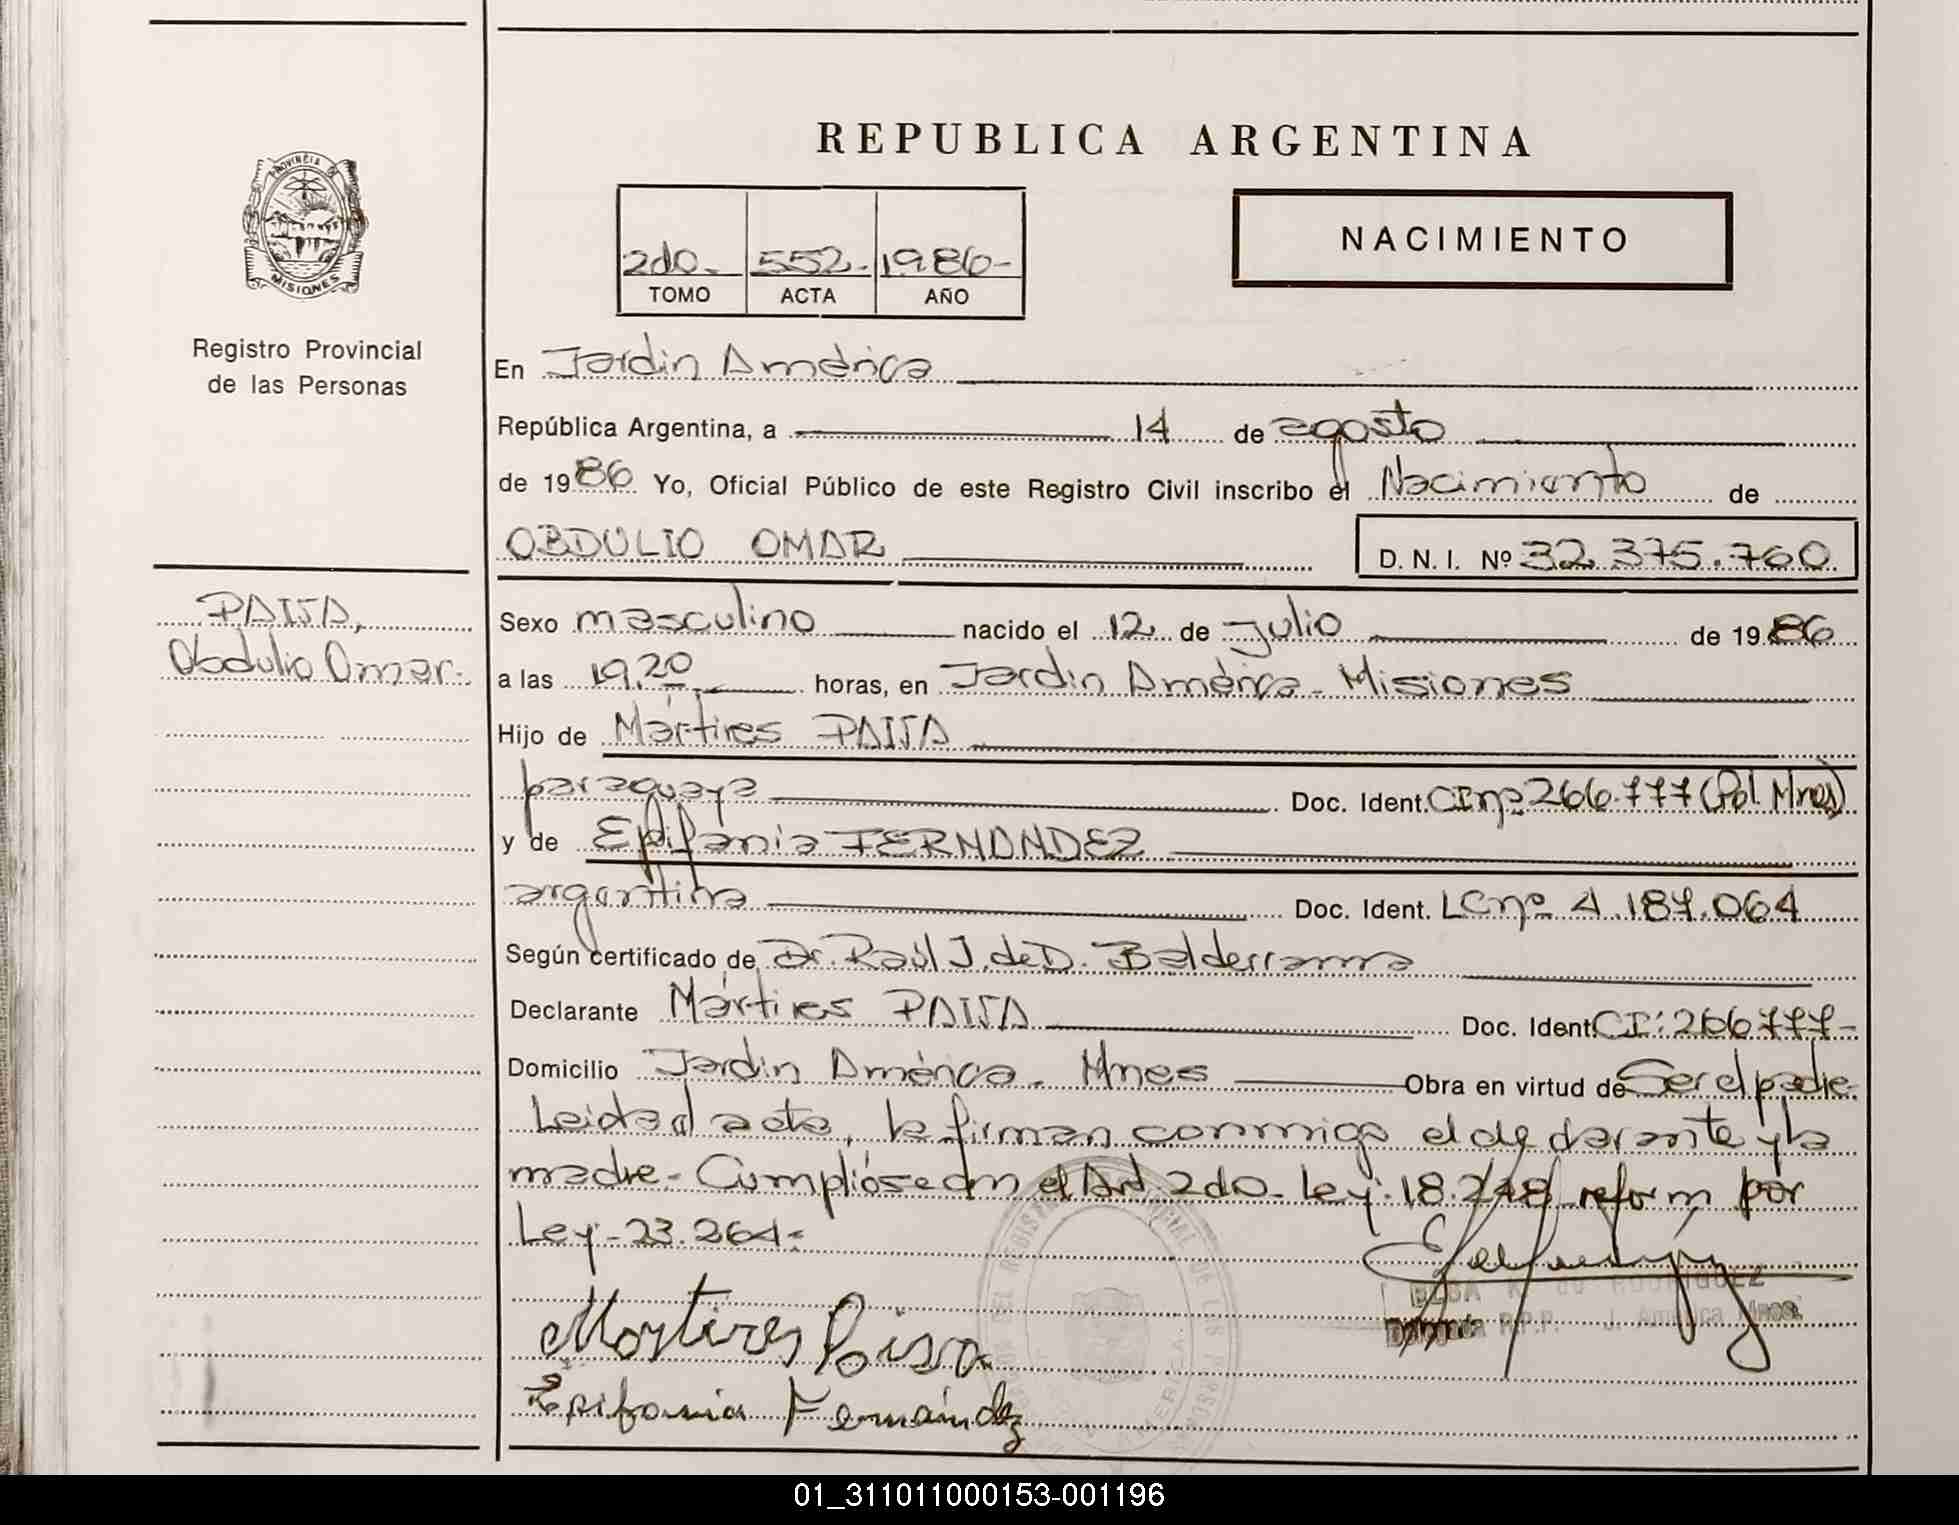 REPUBLICA ARGENTINA
PROVINCIA DE MISIONES
Registro Provincial
de las Personas
2do. 552. 1986-
TOMO ACTA AÑO
NACIMIENTO
En Jardin América
República Argentina, a 14 de agosto
de 1986 Yo, Oficial Público de este Registro Civil inscribo el Nacimiento de
OBDULIO OMAR D. N. I. Nº 32.375.760
PAISA,
Obdulio Omar.
Sexo masculino nacido el 12 de Julio de 1986
a las 19,20 horas, en Jardin América - Misiones
Hijo de Mártires PAISA
paraguaya Doc. Ident. CI nº 266.777 (Pol. Mnes)
y de Epifania FERNANDEZ
argentina Doc. Ident. LC nº 4.187.064
Según certificado de Dr. Raúl J. de D. Balderrama
Declarante Mártires PAISA Doc. Ident CI: 266777-
Domicilio Jardin América - Mnes Obra en virtud de Ser el padre.
Leida el acta, la firman conmigo el declarante y la
madre - Cumplióse con el Art 2do - Ley 18.248 reform por
Ley - 23.264-
RODRIGUEZ
R.P.P. J. América Mnes.
Martires Paisa
Epifania Fernández
01_311011000153-001196